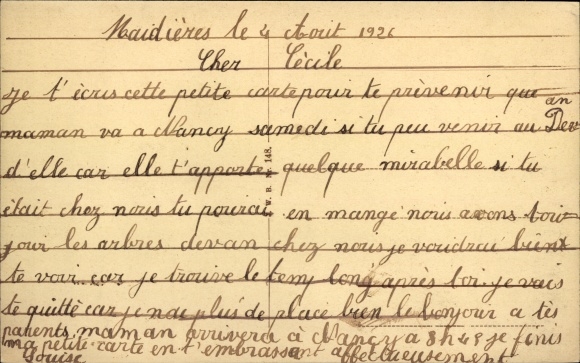 Maidières le 4 Août 1926
Cher Cécile
Je t'écris cette petite carte pour te prévenir que
maman va a Nancy samedi si tu peu venir au an Dev
d'elle car elle t'apporte quelque mirabelle si tu
était chez nous tu pourai en mangé nous avons touj
jour les arbres devan chez nous je voudrai bient
te voir car je trouve le temp long après toi. je vais
te quitté car je nai plus de place bien le bonjour a tes
parents, maman arrivera à Nancy a 8h48 je finis
ma petite carte en t'embrassant affectueusement
Louise
W. B. N. 148.